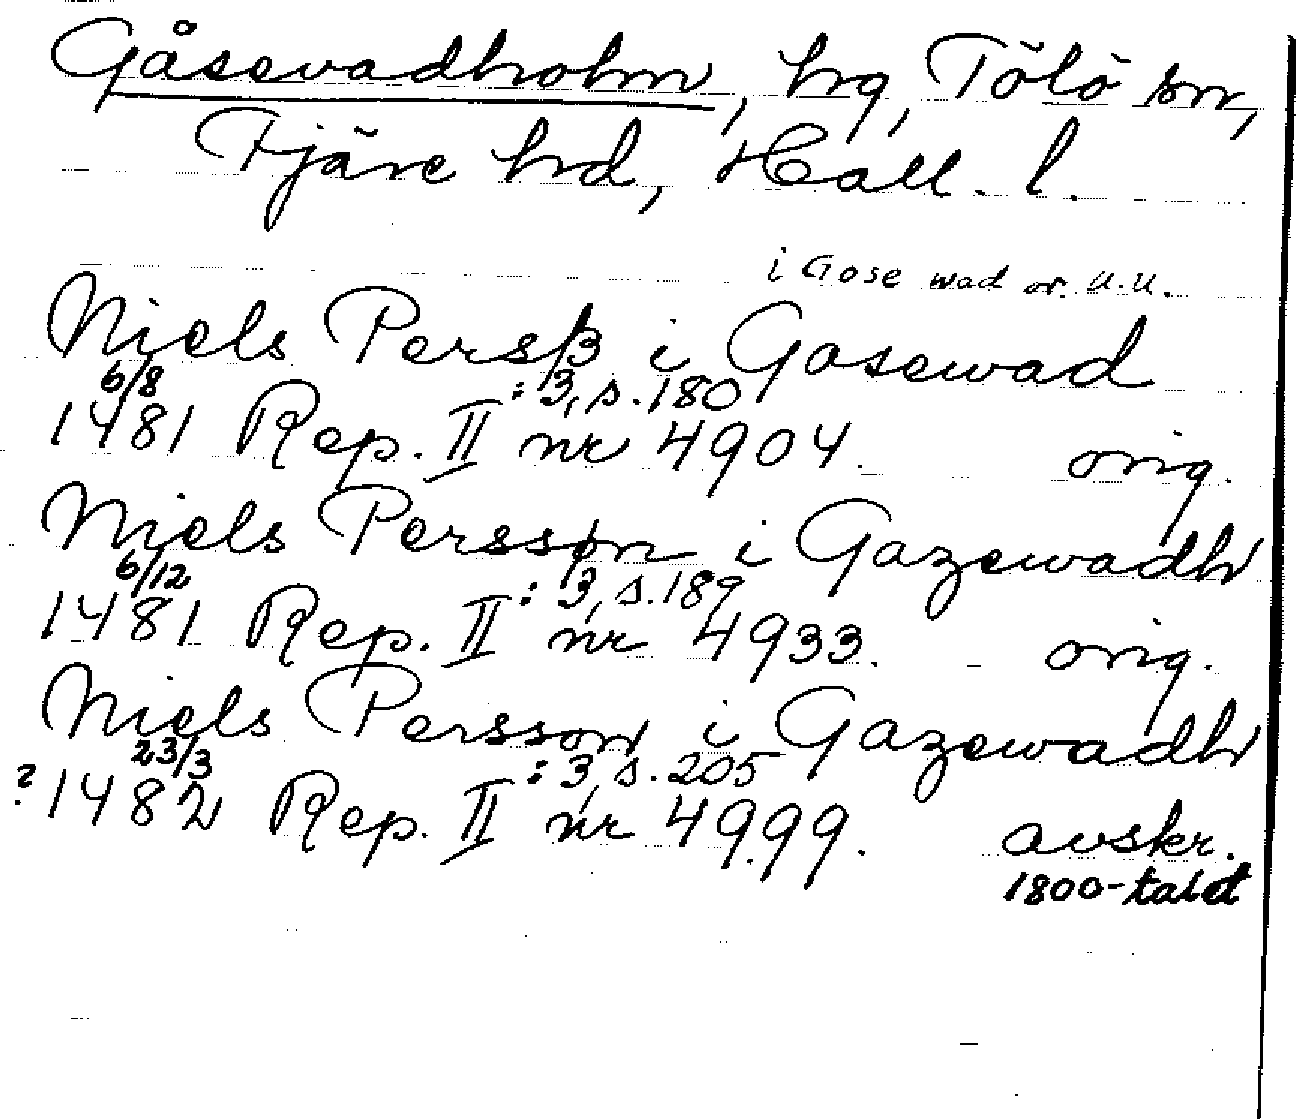 Gåsevadholm, hrg, Tölö sn,
Fjäre hd, Hall. l.
i Gose wad or. U.U.
Niels Persß i Gasewad
6/8 :3, s. 180
1481 Rep. II nr 4904. orig.
Niels Persson i Gazewadh
6/12 :3, s. 189
1481 Rep. II nr 4933. orig.
Niels Persson i Gazewadh
23/3 :3, s. 205
? 1482 Rep. II nr 4999. avskr.
1800-talet